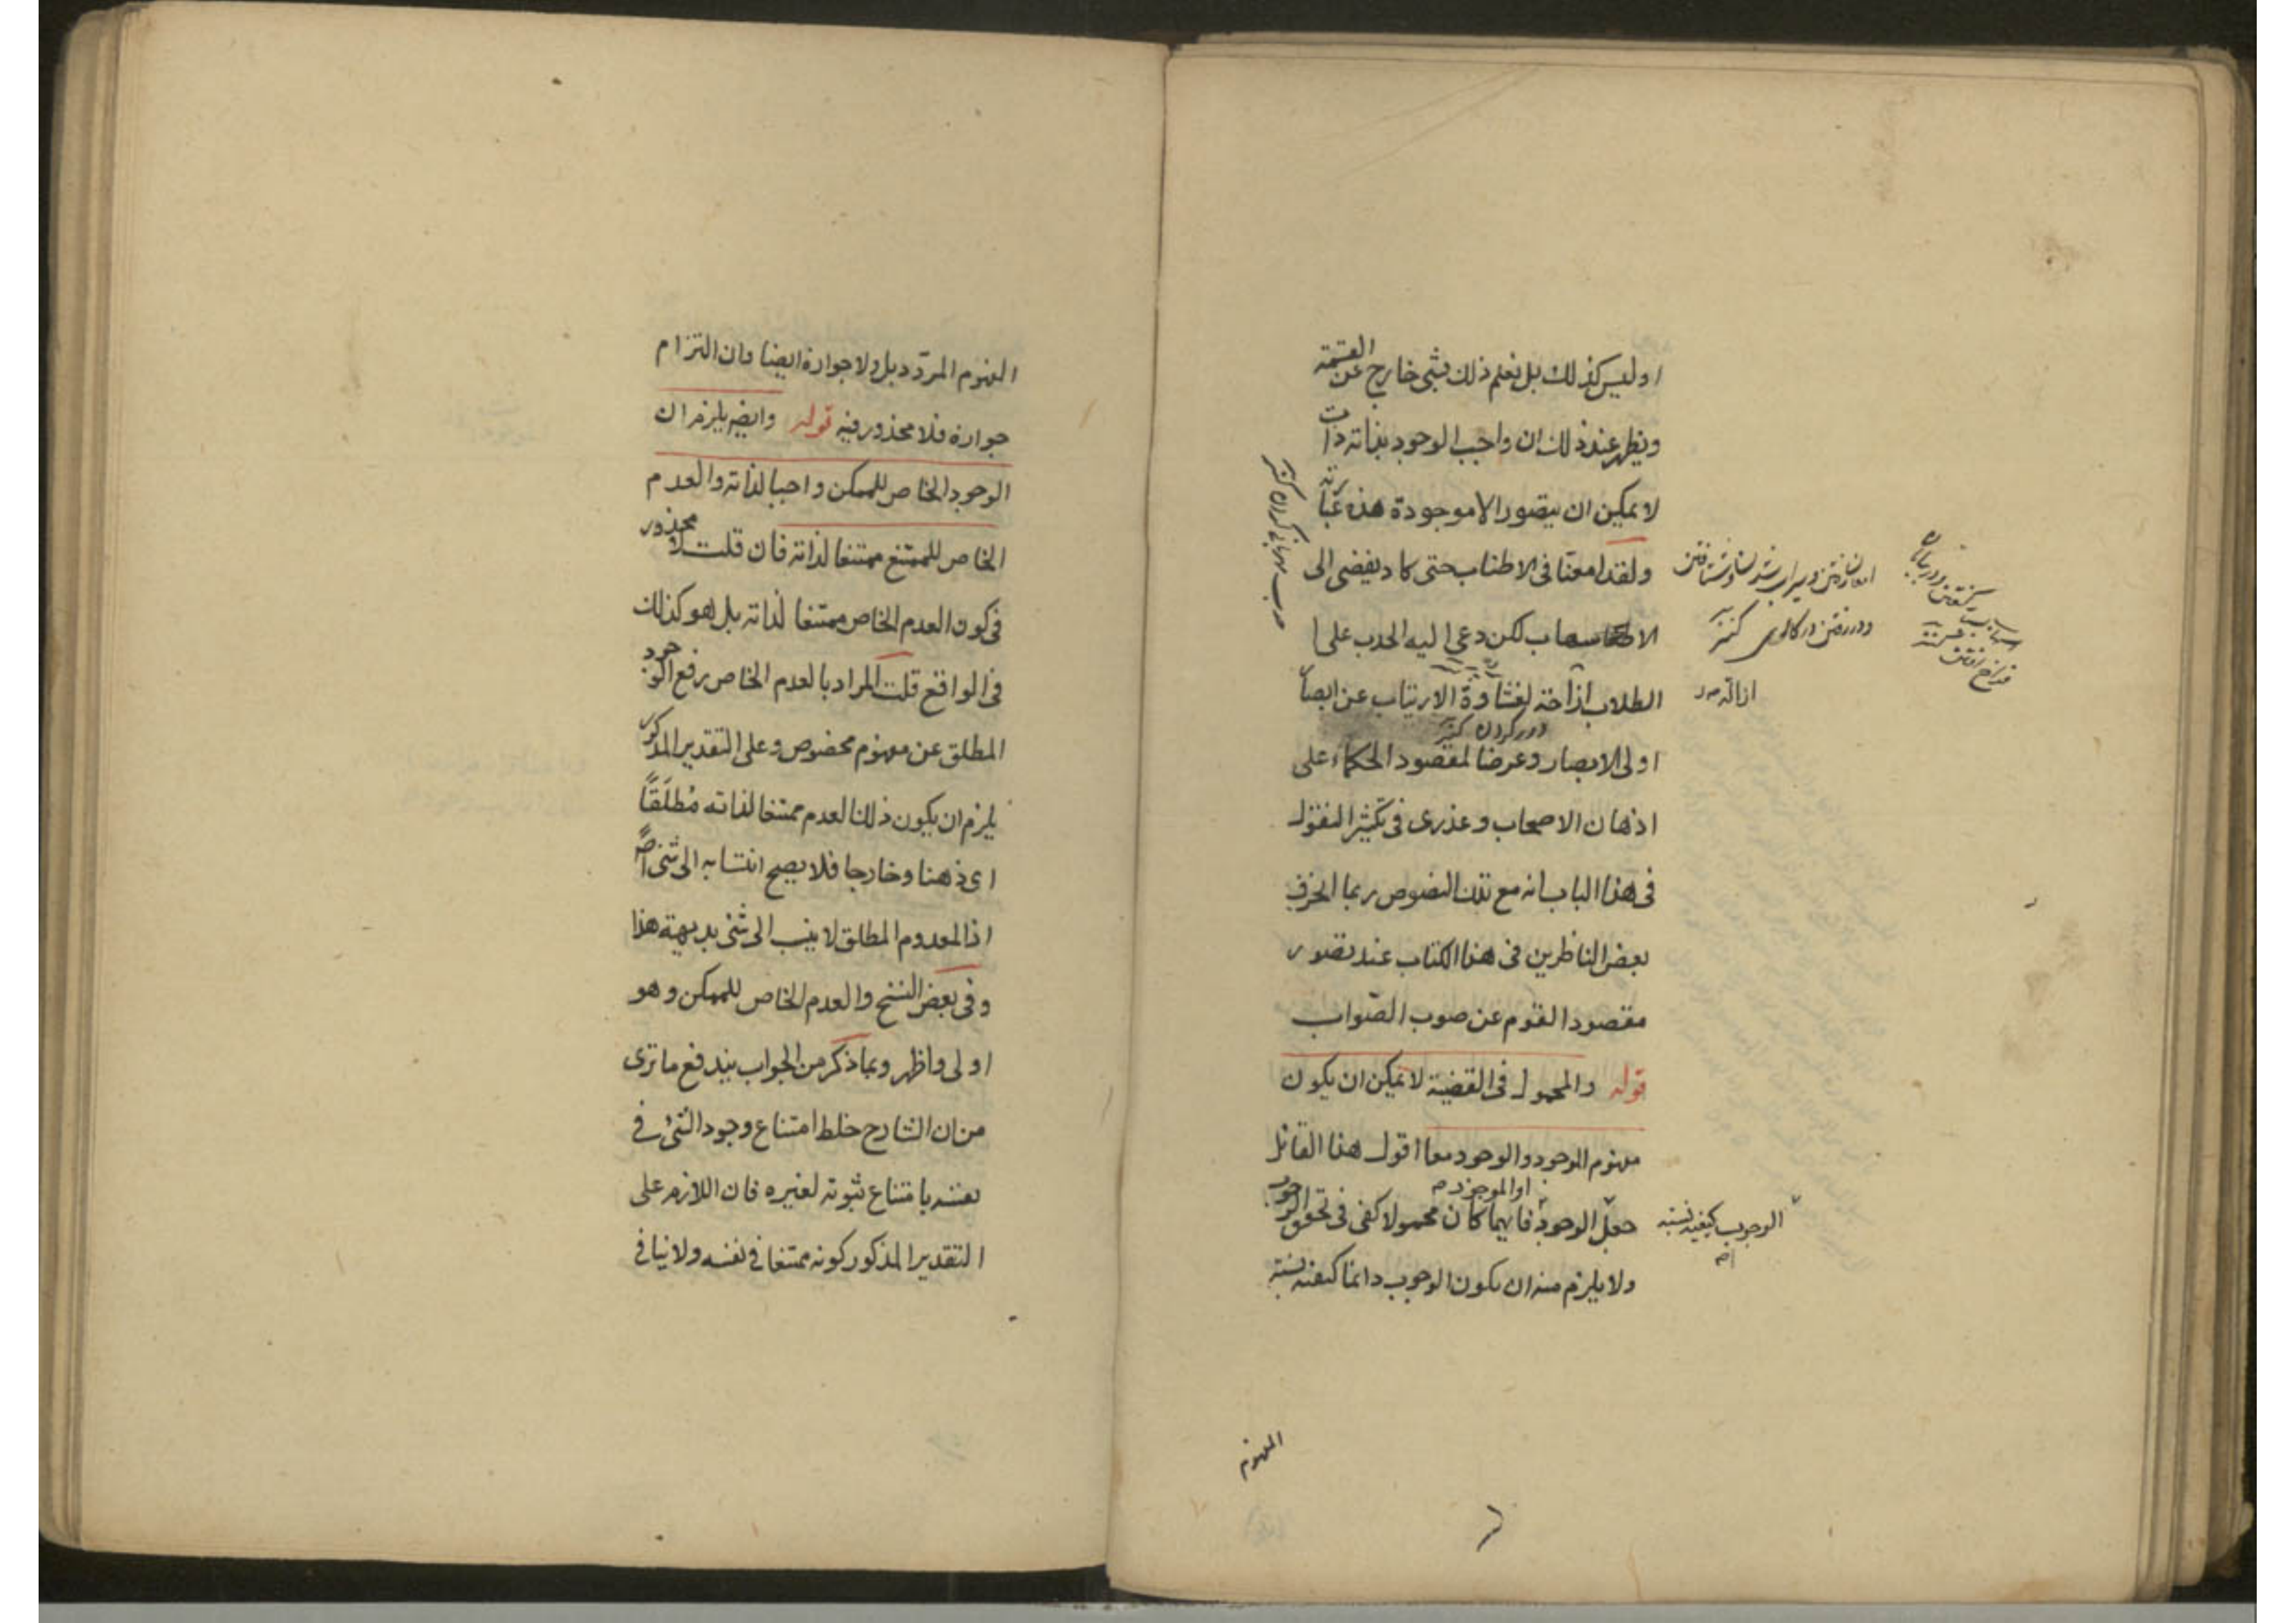 او ليس كذلك بل نعلم ذلك بشئ خارج عن القسمة
ويظهر عند ذلك ان واجب الوجود بذاته ذات
لا يمكن ان يتصور الا موجودة هذه عبارته
ولقد امعنا فى الاطناب حتى كاد يفضى الى
الا ب لكن دعى اليه الحدب على ا
الطلاب ازاحة لغشاوة الارتياب عن ابصا
دور كردن
اولى الابصار وعرضا لمقصود الحكماء على
اذهان الاصحاب وعذرى فى تكثير النقول
فى هذا الباب انه مع تلك النصوص ربما انحرف
بعض الناظرين فى هذا الكتاب عند تصور
مقصود القوم عن صوب الصّواب
قوله والمحمول فى القضية لا يمكن ان يكون
مفهوم الموجود والوجود معا اقول هذا القائل
او الموجود
جعل الوجود فايهما كان محمولا كفى فى تحقق الوجوب
ولا يلزم منه ان يكون الوجوب دائما كيفية نسبة
الوجوب كيفية نسبة
ازاله
المفهوم
المفهوم المردّد بل ولا جوازه ايضا فان التزام
جوازه فلا محذور فيه قوله وايضا يلزم ان
الوجود الخاص للممكن واجبا لذاته والعدم
الخاص للممتنع ممتنعا لذاته فان قلت لا محذور
فى كون العدم الخاص ممتنعا لذاته بل هو كذلك
فى الواقع قلت المراد بالعدم الخاص رفع الوجود
المطلق عن مفهوم مخصوص وعلى التقدير المذكور
يلزم ان يكون ذلك العدم ممتنعا لذاته مُطلَقًا
اى ذهنا وخارجا فلا يصح انتسابه الى شئ اصلا
اذ المعدوم المطلق لا ينسب الى شئ بديهة هذا
وفى بعض النسخ والعدم الخاص للممكن وهو
اولى واظهر وبما ذكر من الجواب يندفع ما ترى
من ان الشارح خلط امتناع وجود الشئ فى
نفسه بامتناع ثبوته لغيره فان اللازم على
التقدير المذكور كونه ممتنعا فى نفسه ولا ينافى